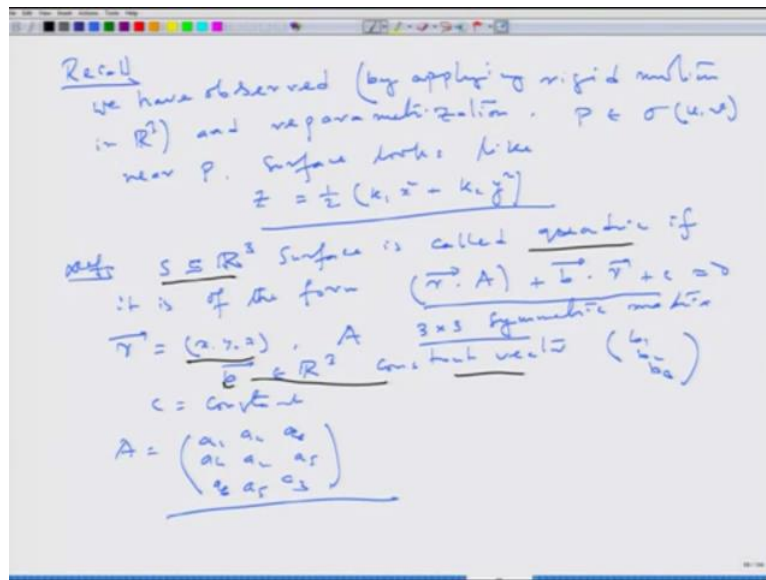 Recall
we have observed (by applying rigid motion
in R³) and reparametrization. P ∈ σ(u,v)
near P. Surface looks like
z = ½ (k₁ x² - k₂ y²)
Def: S ⊆ R³ surface is called quadric if
it is of the form (r⃗ · A) + b⃗ · r⃗ + c = 0
r⃗ = (x, y, z), A 3x3 symmetric matrix
b⃗ ∈ R³ constant vector (b₁ b₂ b₃)
c = constant
A = (a₁ a₄ a₆
a₄ a₂ a₅
a₆ a₅ a₃)